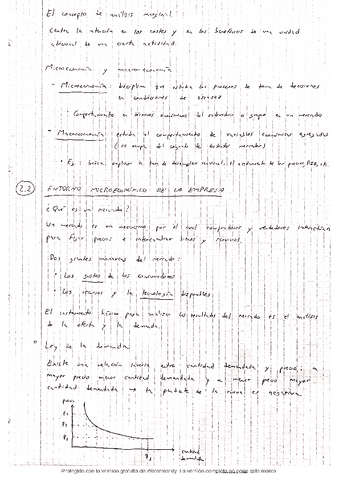 El concepto de análisis marginal
Centra la atención en los costes y en los beneficios de una unidad
adicional de una cierta actividad.
Microeconomía y macroeconomía
- Microeconomía: disciplina que estudia los procesos de toma de decisiones
en condiciones de escasez
· Comportamiento en términos económicos del individuo o grupo en un mercado
- Macroeconomía: estudia el comportamiento de variables económicas agregadas
(se ocupa del conjunto de distintos mercados)
· Ej: busca explicar la tasa de desempleo nacional, el aumento de los precios, PIB, etc.
2.2 ENTORNO MICROECONÓMICO DE LA EMPRESA
¿Qué es un mercado?
Un mercado es un mecanismo por el cual compradores y vendedores interactúan
para fijar precios e intercambiar bienes y servicios.
Dos grandes motores del mercado:
· Los gustos de los consumidores
· Los recursos y la tecnología disponibles
El instrumento básico para analizar los resultados del mercado es el análisis
de la oferta y la demanda.
Ley de la demanda
Existe una relación inversa entre cantidad demandada y precio: a
mayor precio menor cantidad demandada y a menor precio mayor
cantidad demandada → la pendiente de la curva es negativa.
precio
cantidad
demandada